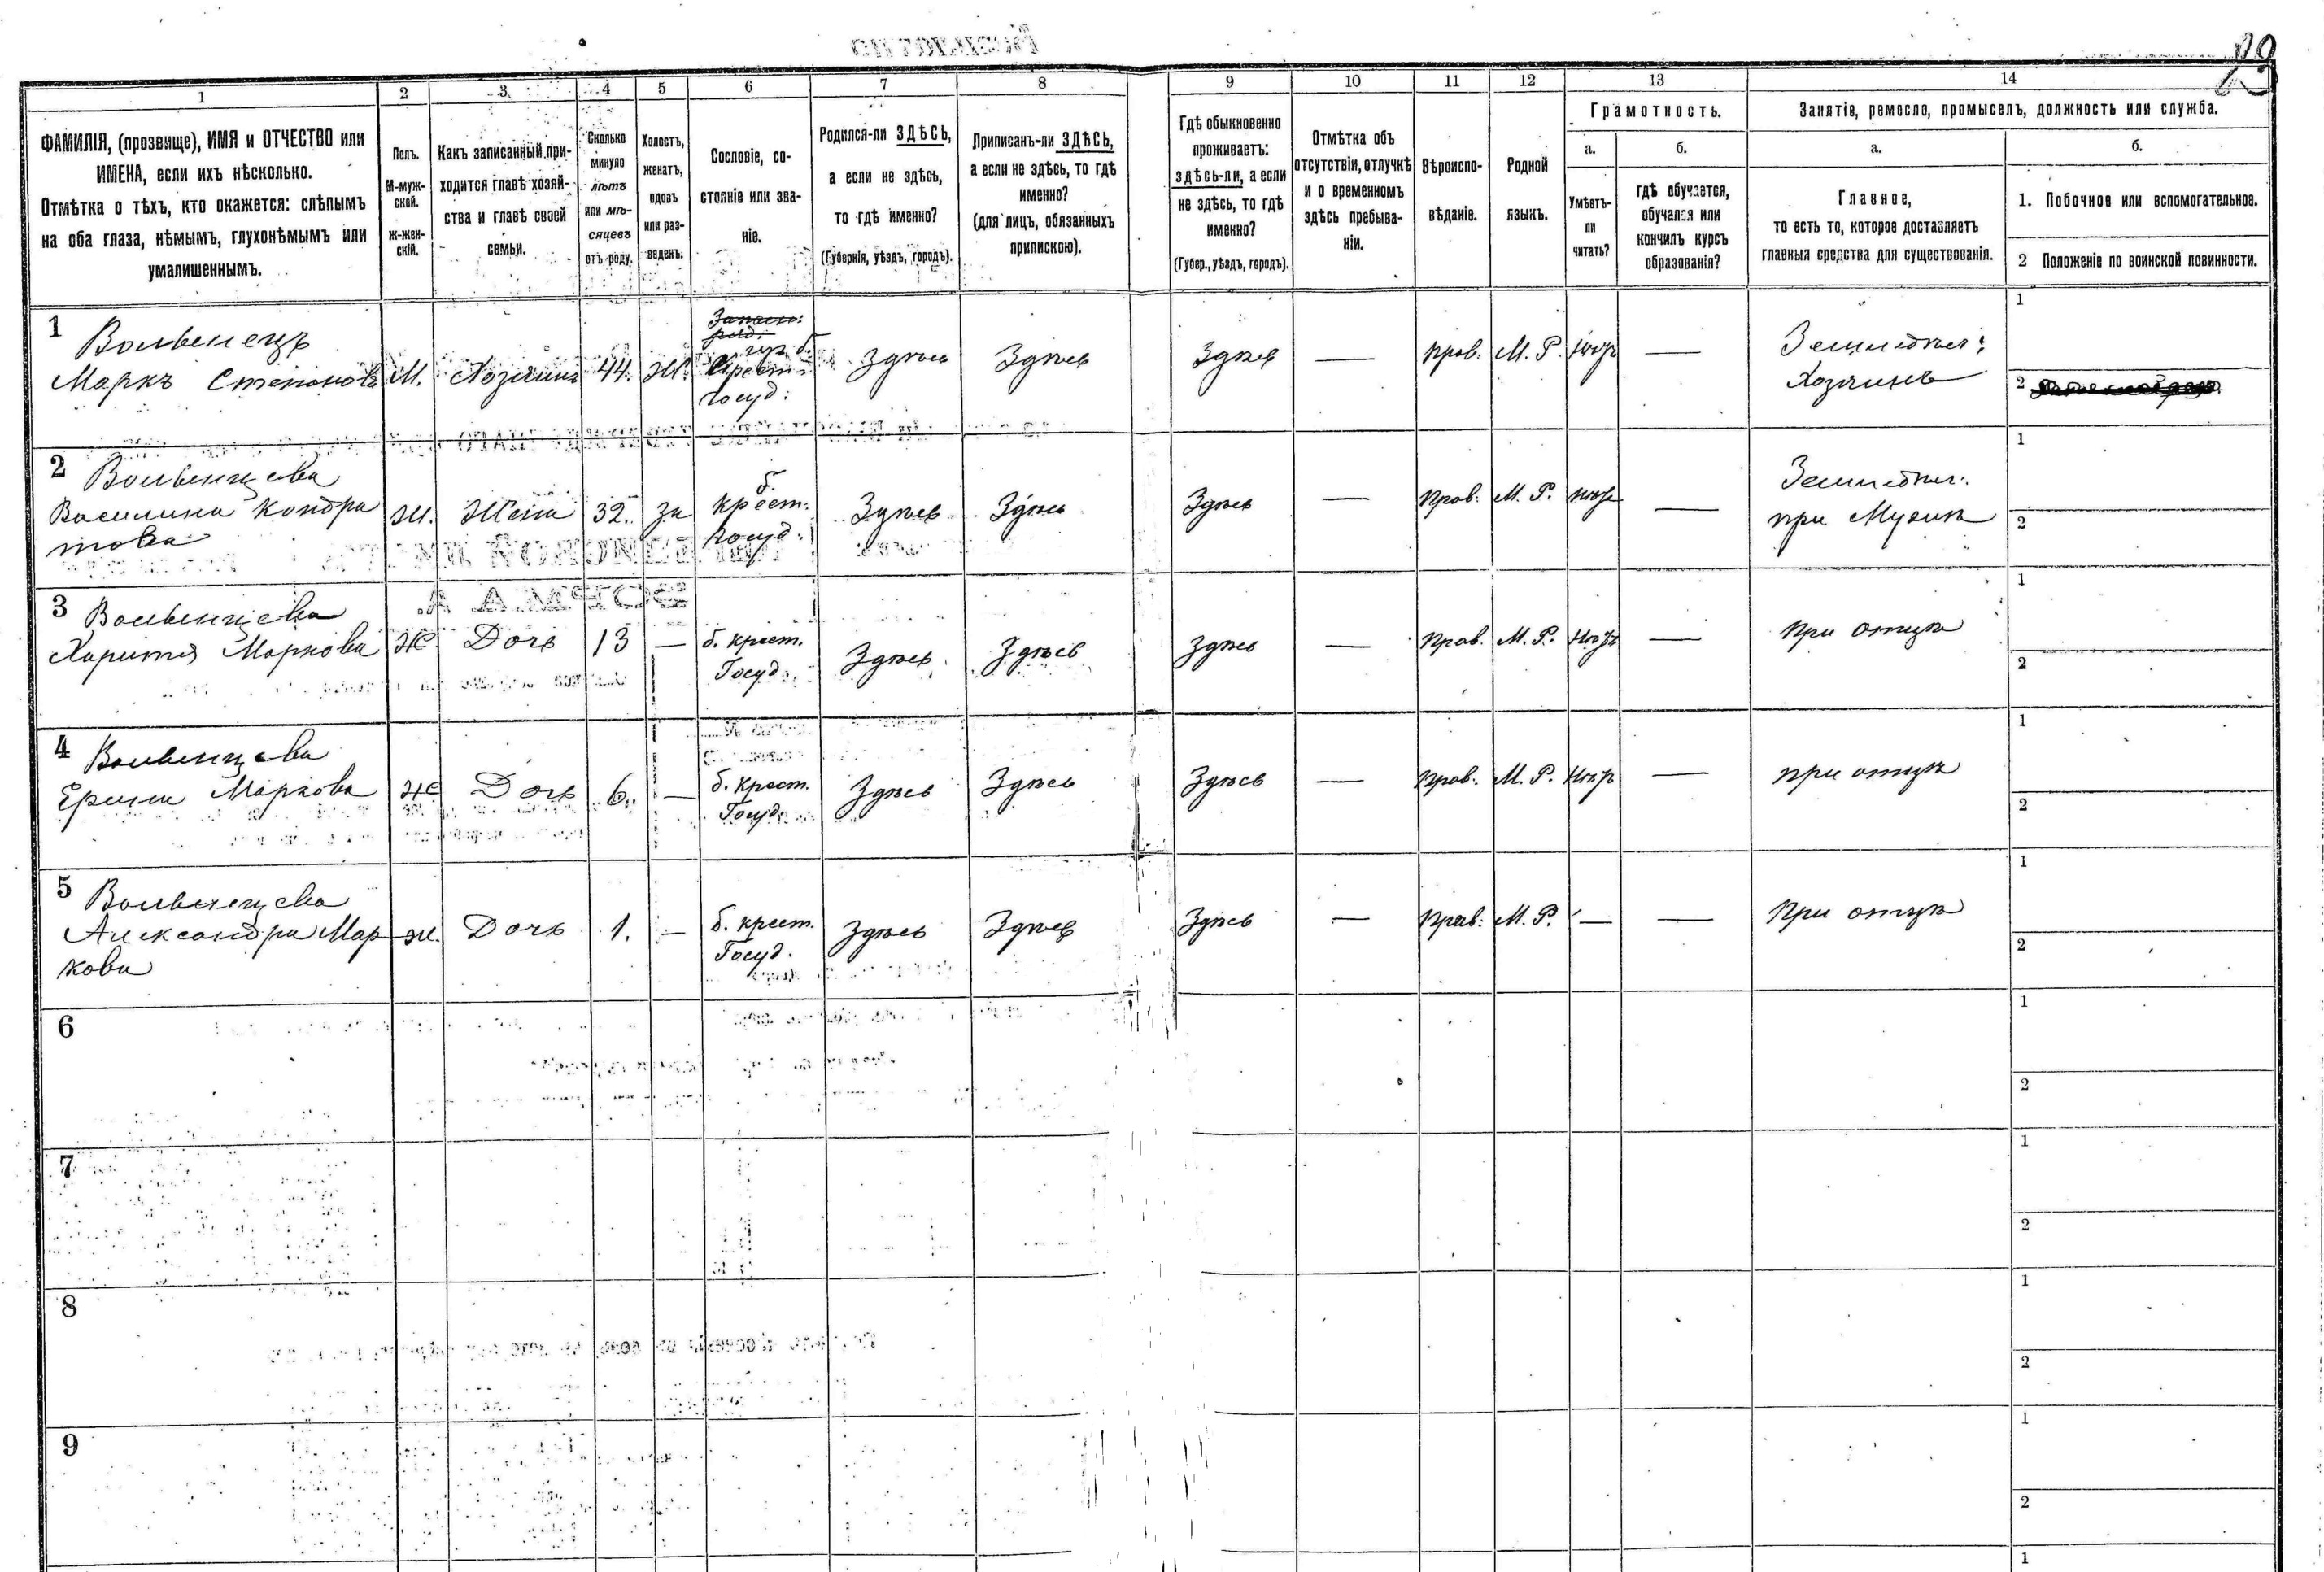 1
2
3
4
5
6
7
8
9
10
11
12
13
14
ФАМИЛІЯ, (прозвище), ИМЯ и ОТЧЕСТВО или
ИМЕНА, если ихъ нѣсколько.
Отмѣтка о тѣхъ, кто окажется: слѣпымъ
на оба глаза, нѣмымъ, глухонѣмымъ или
умалишеннымъ.
Полъ.
М-муж-
ской.
Ж-жен-
скій.
Какъ записанный при-
ходится главѣ хозяй-
ства и главѣ своей
семьи.
Сколько
минуло
лѣтъ
или мѣ-
сяцевъ
отъ роду.
Холостъ,
женатъ,
вдовъ
или раз-
веденъ.
Сословіе, со-
стояніе или зва-
ніе.
Родился-ли ЗДѢСЬ,
а если не здѣсь,
то гдѣ именно?
(Губернія, уѣздъ, городъ).
Приписанъ-ли ЗДѢСЬ,
а если не здѣсь, то гдѣ
именно?
(для лицъ, обязанныхъ
припискою).
Гдѣ обыкновенно
проживаетъ:
здѣсь-ли, а если
не здѣсь, то гдѣ
именно?
(Губер., уѣздъ, городъ).
Отмѣтка объ
отсутствіи, отлучкѣ
и о временномъ
здѣсь пребыва-
ніи.
Вѣроиспо-
вѣданіе.
Родной
языкъ.
Грамотность.
а.
Умѣетъ-
ли
читать?
б.
гдѣ обучается,
обучался или
кончилъ курсъ
образованія?
Занятіе, ремесло, промыселъ, должность или служба.
а.
Главное,
то есть то, которое доставляетъ
главныя средства для существованія.
б.
1. Побочное или вспомогательное.
2 Положеніе по воинской повинности.
1 Вольвенецъ
Маркъ Степановъ М. Хозяинъ 44. Ж. Крест. Госуд. Здѣсь Здѣсь Здѣсь — Прав. М. Р. нѣтъ — Земледѣл: Хозяинъ 1 2
2 Вольвенцева
Василина Кондра
това ж. Жена 32. за б. крест. Госуд. Здѣсь Здѣсь Здѣсь — Прав. М. Р. нѣтъ — Земледѣл. при Мужѣ 1 2
3 Вольвенцева
Харитя Маркова Ж Дочь 13 — б. крест. Госуд. Здѣсь Здѣсь Здѣсь — Прав. М. Р. нѣтъ — при отцѣ 1 2
4 Вольвенцева
Ерина Маркова Ж Дочь 6. — б. крест. Госуд. Здѣсь Здѣсь Здѣсь — Прав. М. Р. нѣтъ — при отцѣ 1 2
5 Вольвенцева
Александра Мар
кова ж. Дочь 1. — б. крест. Госуд. Здѣсь Здѣсь Здѣсь — Прав. М. Р. — — При отцѣ 1 2
6 1 2
7 1 2
8 1 2
9 1 2
1